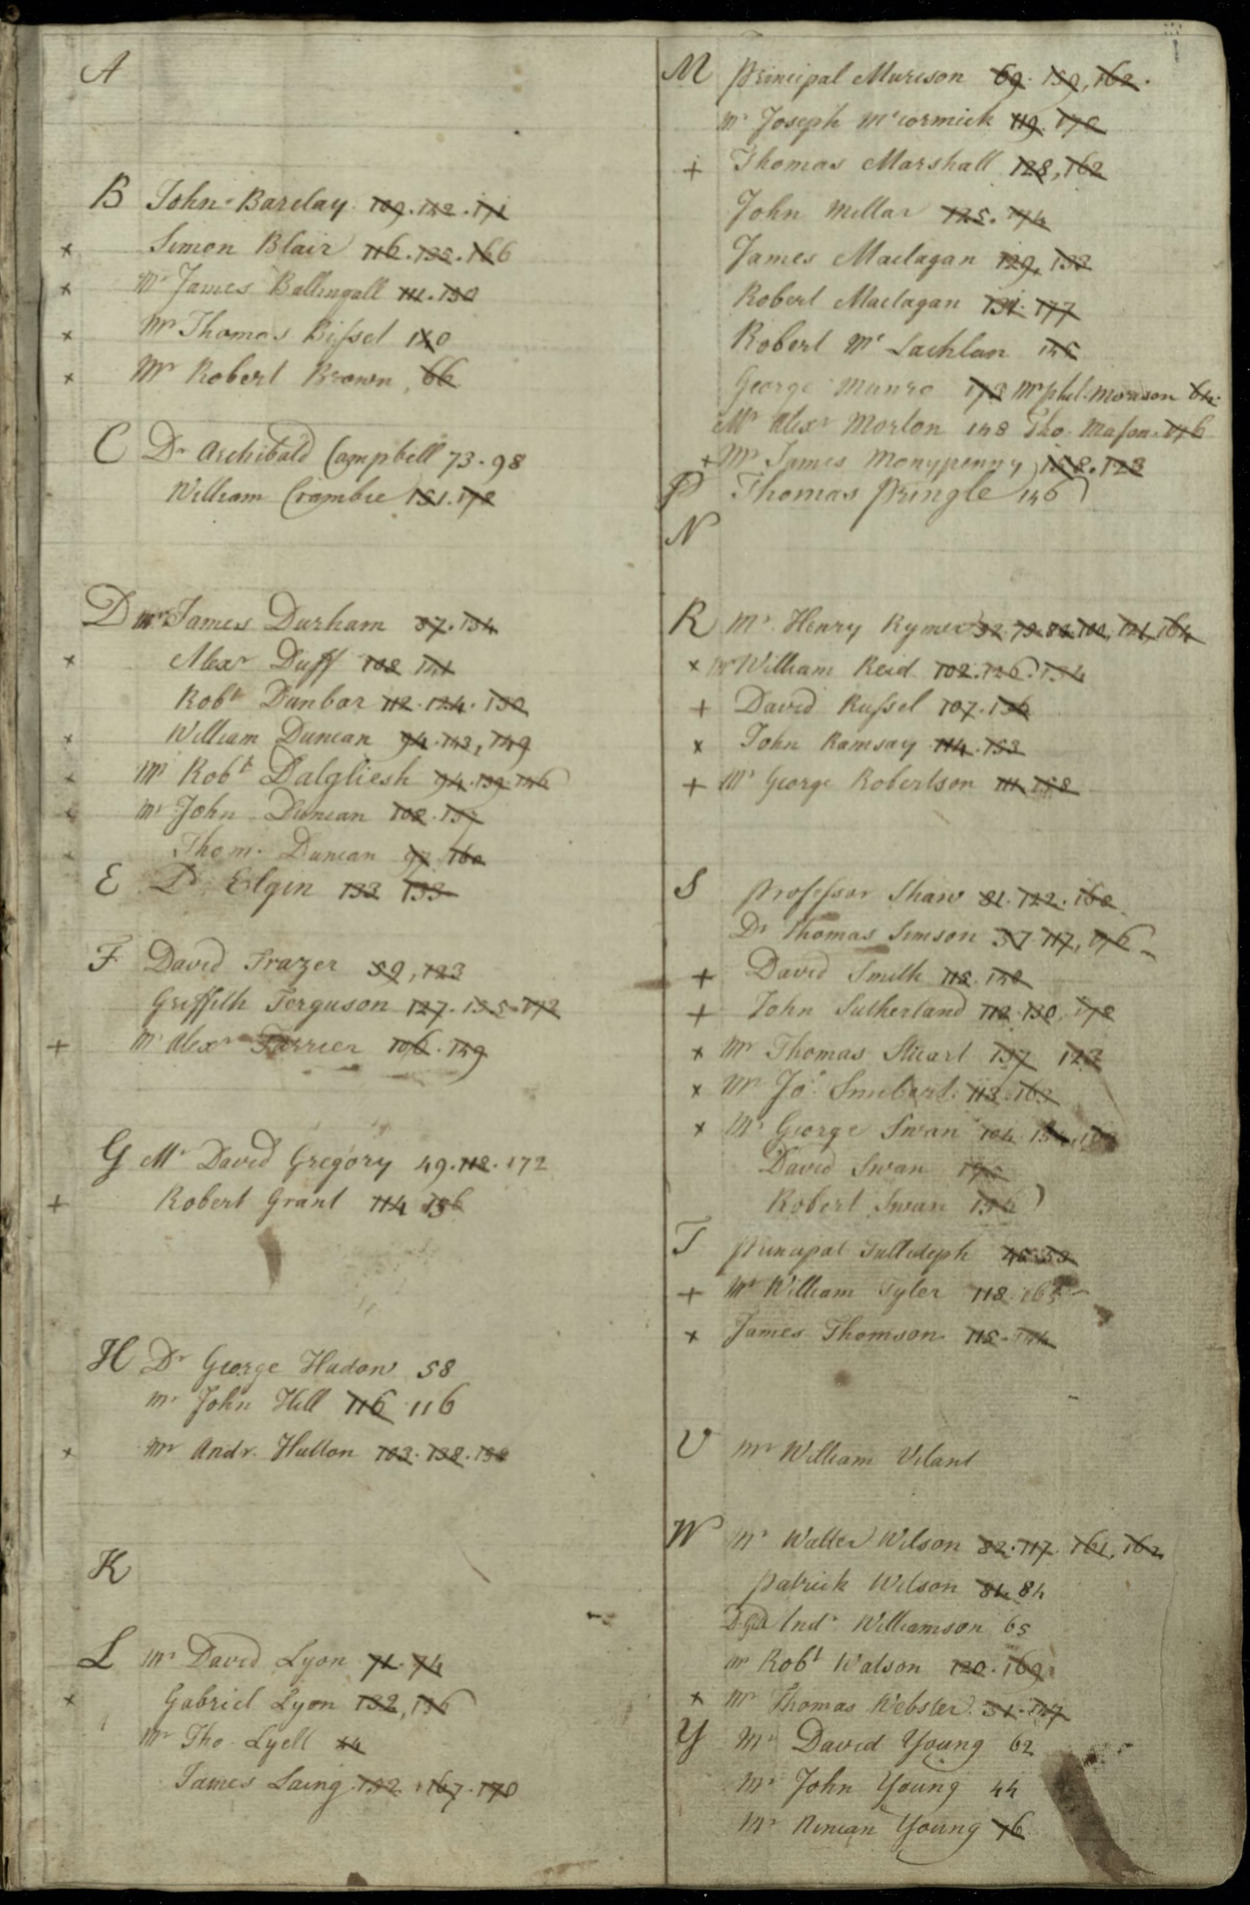 A
B John Barclay 109.142.171
x Simon Blair 116.135.166
x Mr James Ballingall 111.130
x Mr Thomas Bissel 110
x Mr Robert Brown 66
C Dr Archibald Campbell 73.98
William Crambie 131.178
D Mr James Durham 87.134
x Alexr Duff 108 141
Robt Dunbar 112.124.130
x William Duncan 94.143,149
x Mr Robt Dalgliesh 94.139.146
x Mr John Duncan 108.137
Thom. Duncan 97 160
E Elgin 132 133
F David Frazer 59,123
Griffith Ferguson 127.135.172
+ Mr Alexr Farrier 106.149
G Mr David Gregory 49.118.172
+ Robert Grant 114 156
H Dr George Hadow 58
Mr John Hill 116 116
x Mr Andr. Hutton 103.138.
K
L Mr David Lyon 71.74
x Gabriel Lyon 132,136
Mr Tho. Lyell
James Laing 132.167.170
M Principal Murison 69.159,162.
Mr Joseph Mccormick 119.170
+ Thomas Marshall 128,162
John Millar 125.174
James Maclagan 129,132
Robert Maclagan 131.177
Robert Mc Lachlan
George Munro 173 Mr Phil. Morison 64
Mr Alexr Morton 148 Tho. Mason 176
+ Mr James Monypenny 108.123
P Thomas Pringle 146
N
R Mr Henry Rymer 164
x Mr William Reid 102.126.134
+ David Russel 107.136
x John Ramsay 114.153
+ Mr George Robertson 111.158
S Professor Shaw 81.122.168
Dr Thomas Simson 37 117,176
+ David Smith 115.140
+ John Sutherland 112.130.178
x Mr Thomas Stuart 137 123
x Mr Jo: Smibert 113.163
x Mr George Swan 104
David Swan
Robert Swan
T Principal Tullideph
+ Mr William Tyler 118 165
x James Thomson 115.144
U Mr William Vilant
W Mr Walter Wilson 82.117.161,162
Patrick Wilson 84 84
Williamson 65
Mr Robt Watson 120.169
x Mr Thomas Webster 51.147
Y Mr David Young 62
Mr John Young 44
Mr Ninian Young 76